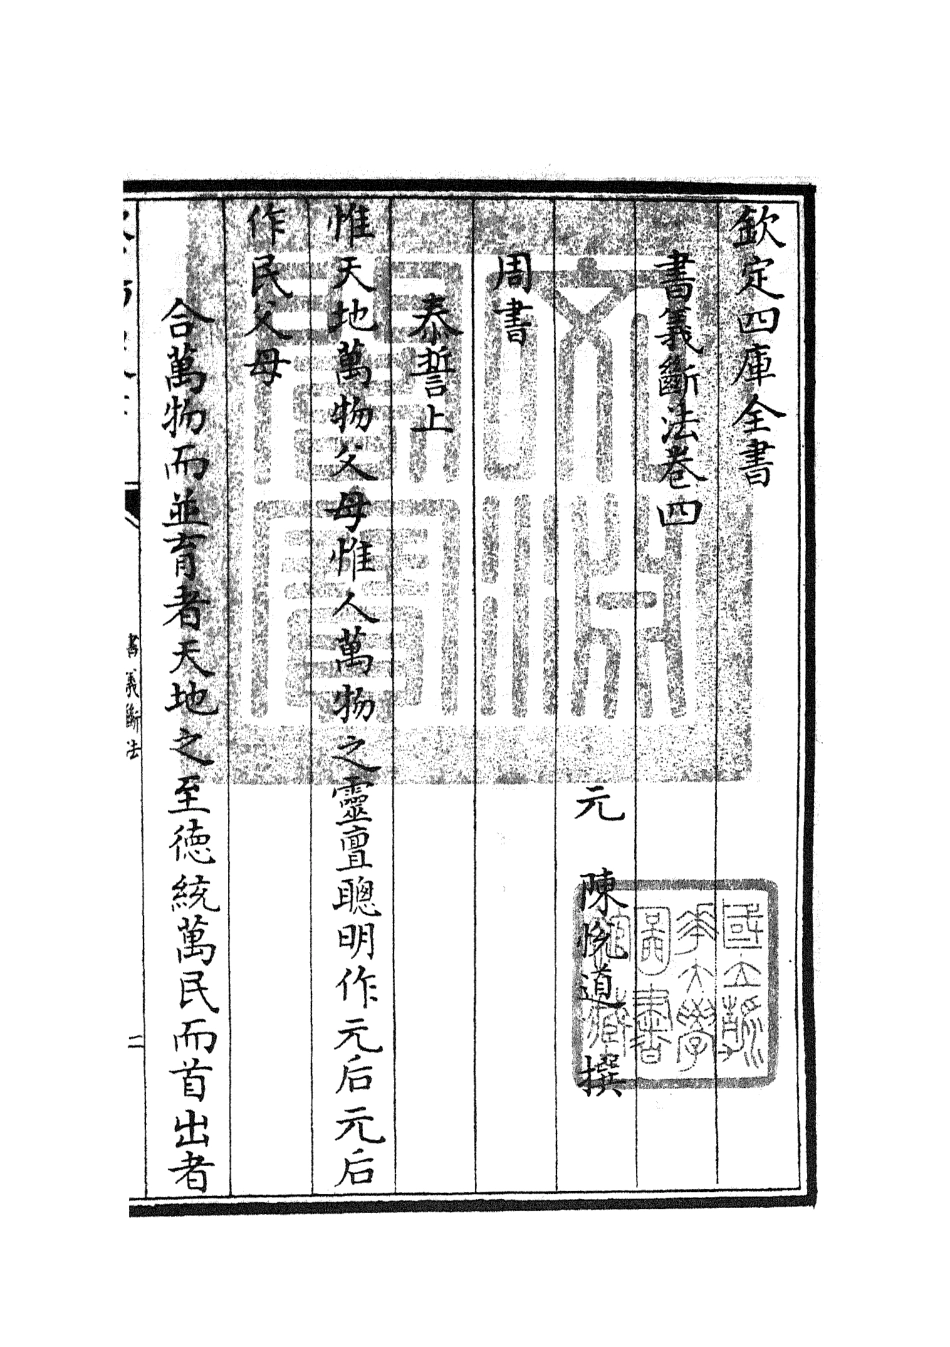 欽定四庫全書
書義斷法卷四
元 陳悅道 撰
周書
泰誓上
惟天地萬物父母惟人萬物之靈亶聰明作元后元后
作民父母
合萬物而並育者天地之至德統萬民而首出者
書義斷法
二